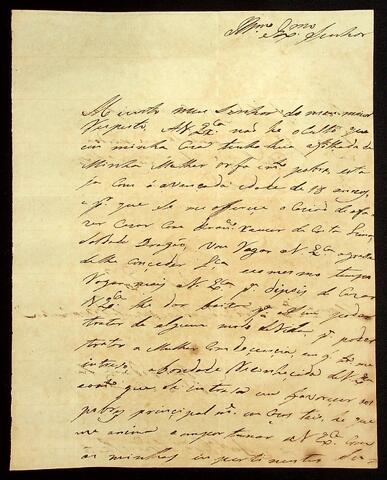 Illmo e Exmo Senhor
Muito meu Senhor do meu maior
Respeito, A V Exa não he oculto que
em minha Caza tenho hua afilhada de
Minha Mulher orfa mto pobre, esta
ja com a avançada idade de 18 annos,
e pr que se me offerece a occazião de a fa
zer Cazar com Xavier da Costa
Soldado Dragão, Vou Rogar a V Exa a graça
de lhe conceder Lça e ao mesmo tempo
Rogar mais a V Exa pa depois de Cazar
V Exa lhe dar baixa pa poder
tratar de alguma modo de Vida, pa poder
tratar a Mulher Com decencia, em q. se me
interessa a bondade Reconhecida de V Exa
como que se intereça em favorecer aos
pobres principalmte em cazos tais, he que
me anima a importunar a V Exa Com
as minhas impertinentes